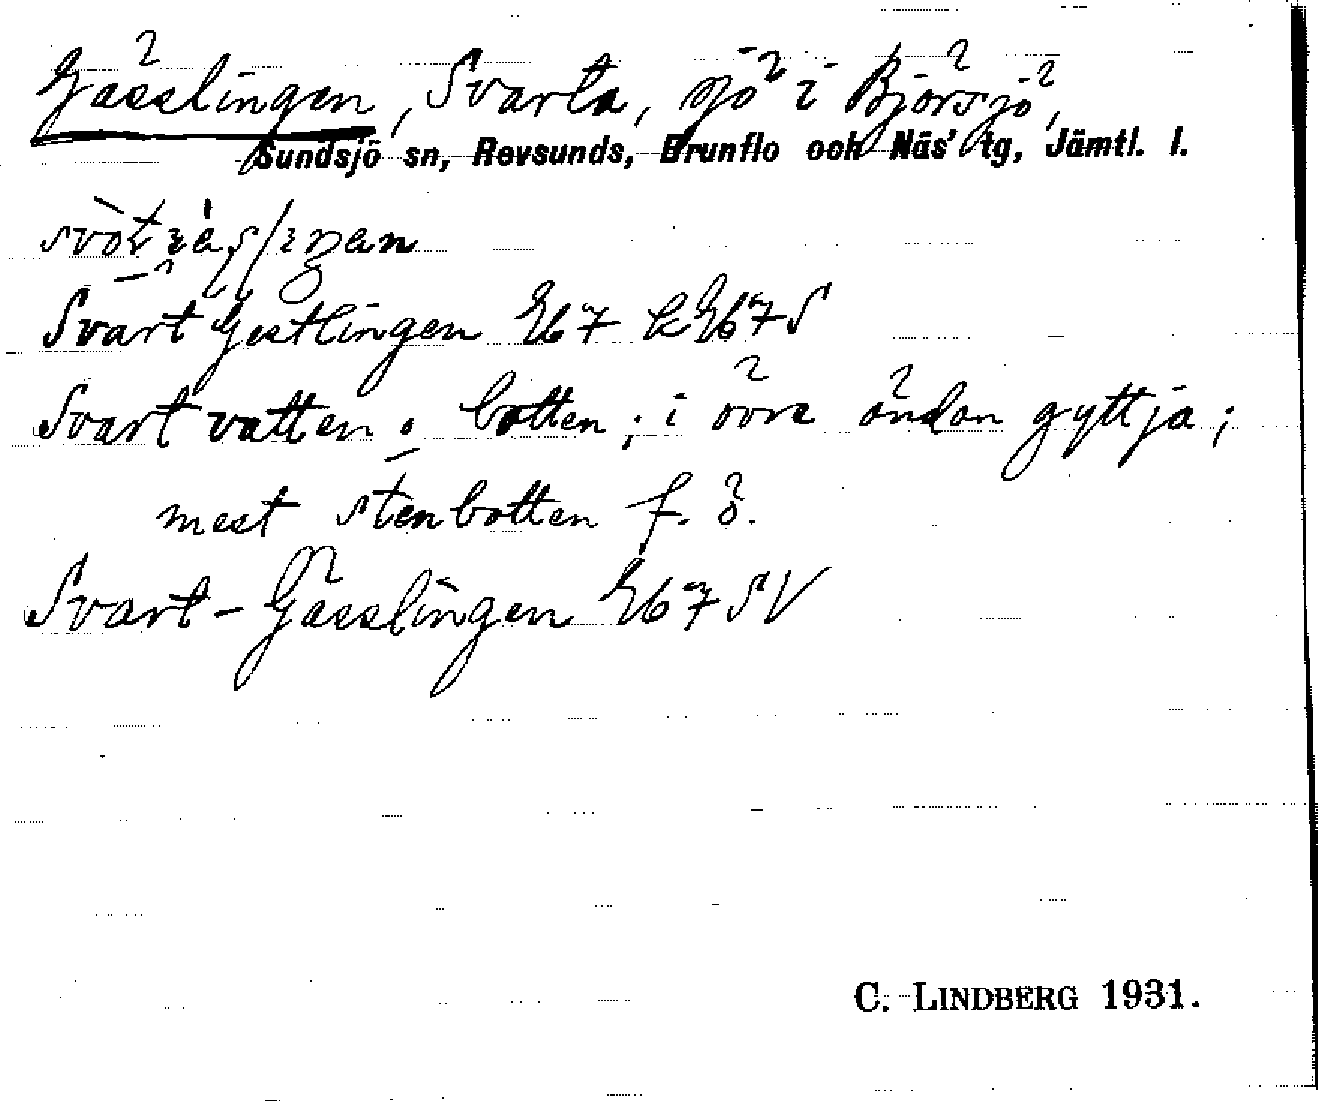 Gässlingen, Svarta, sjö i Björsjö,
Sundsjö sn, Revsunds, Brunflo och Näs' tg, Jämtl. l.
Svart Gestlingen Eb7 k Eb7S
Svart vatten o botten; i övre ändan gyttja;
mest stenbotten f. ö.
Svart-Gässlingen Eb7SV
C. LINDBERG 1931.